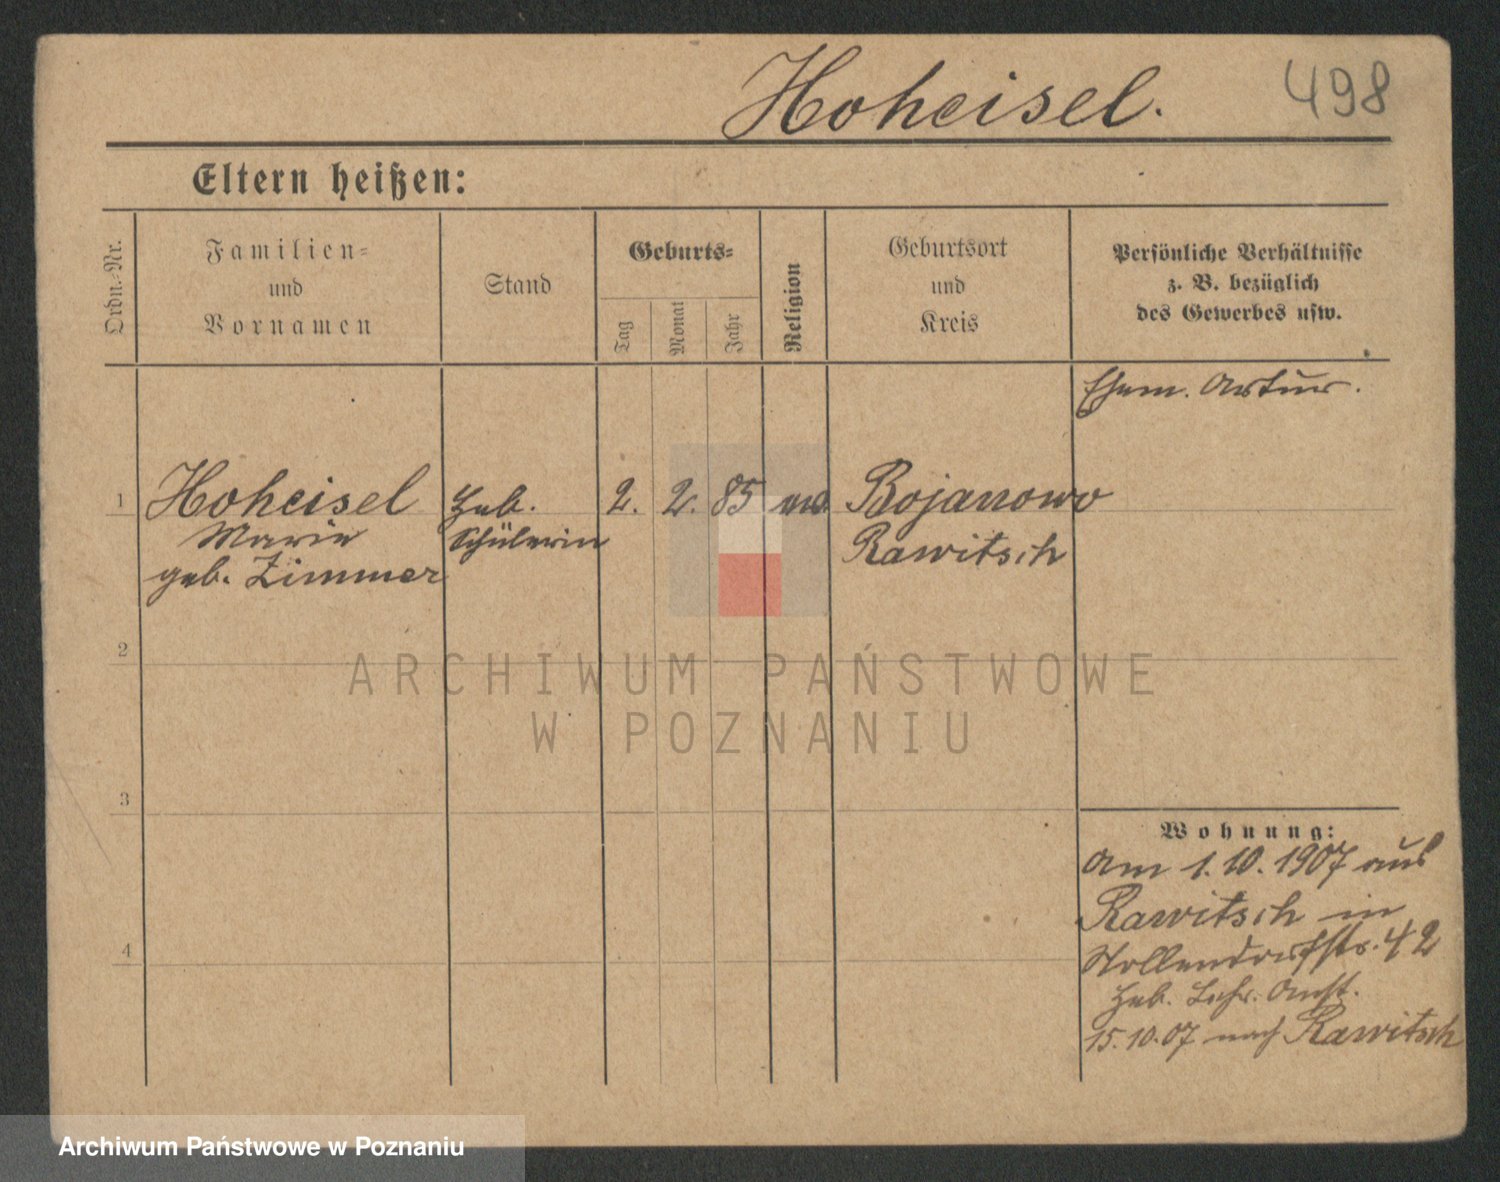 Hoheisel.
498
Eltern heißen:
Ordn.-Nr.
Familien-
und
Vornamen
Stand
Geburts-
Tag
Monat
Jahr
Religion
Geburtsort
und
Kreis
Persönliche Verhältnisse
z. B. bezüglich
des Gewerbes usw.
Ehem. Artur.
1
Hoheisel
Marie
geb. Zimmer
Heb.
Schülerin
2.
2.
85
ev.
Bojanowo
Rawitsch
2
3
4
ARCHIWUM PAŃSTWOWE
W POZNANIU
Wohnung:
Am 1.10.1907 aus
Rawitsch in
Nollendorfstr. 42
Heb. Lehr. Anst.
15.10.07 nach Rawitsch
Archiwum Państwowe w Poznaniu